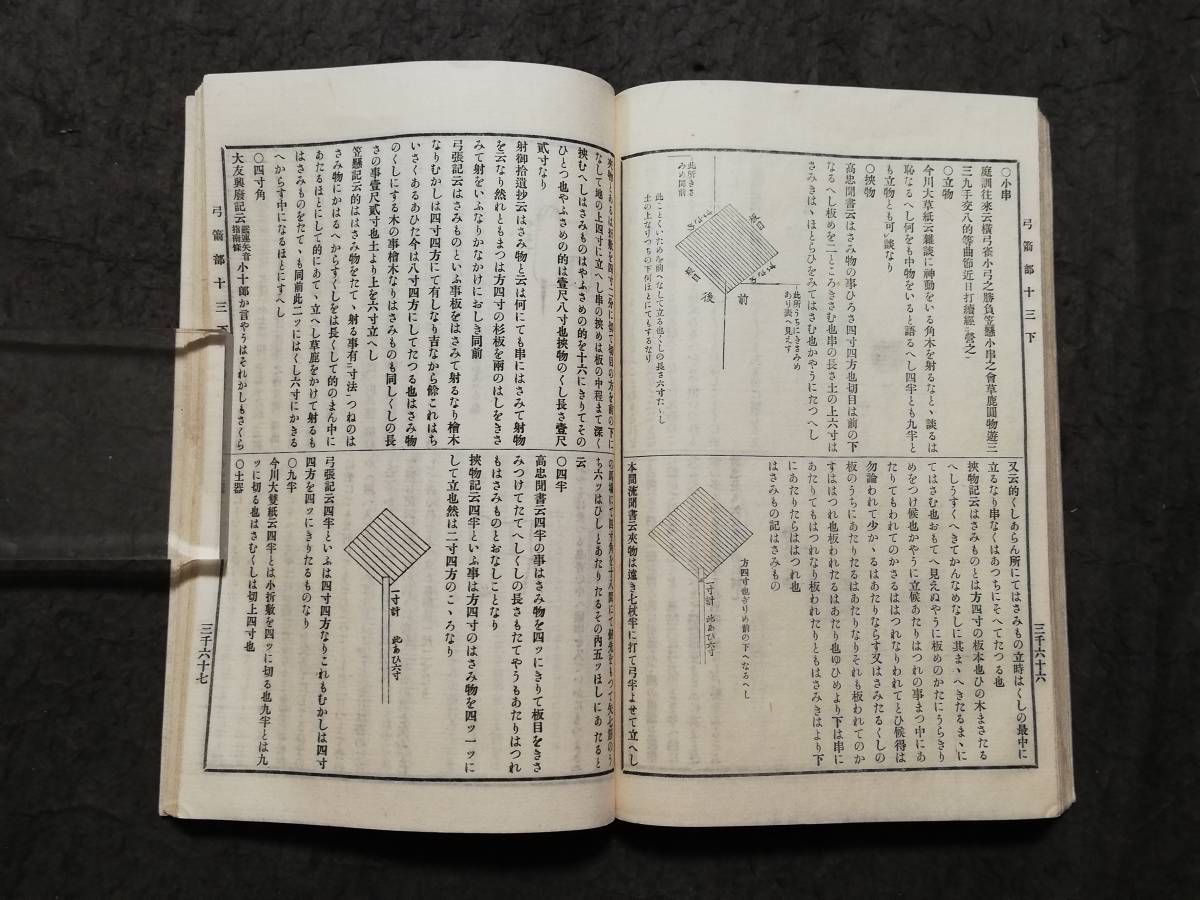 弓箭部十三下
三千六十六
○小串
庭訓往來云橫弓雀小弓之勝負笠懸小串之會草鹿圓物遊三
三九手夾八的等曲節近日打續經二營之一
○立物
今川大草紙云雜談に神動をいる角木を射るなと、談るは
恥なるへし何をも中物をいると語るへし四半とも九半と
も立物とも可レ談なり
○挾物
高忠聞書云はさみ物の事ひろさ四寸四方也切目は前の下
なるへし板めを二ところきさむ也串の長さ土の上六寸は
さみきはヽほとらひをみてはさむ也かやうにたつへし
此所きさみめ聞前
板目
きりめ
板目
前
後
此所うちにきさみめあり表へ見えす
此ことくいためを前へなして立る也くしの長さ六寸たヽし
土の上なりつちの下何ほとにてもするなり
又云的くしあらん所にてはさみもの立時はくしの最中に
立るなり串なくはあつちにそへてたつる也
挾物記云はさみものとは方四寸の板本也ひの木まさたる
へしうすくへきてかんなめなしに其まヽへきたるまヽに
てはさむ也おもてへ見えぬやうに板めのかたにうらきり
めをつけ候也かやうに立候あたりはつれの事まつ中にあ
たりてもわれてのかさるははつれなりわれてとひ候得は
勿論われて少かヽるはあたりならす又はさみたるくしの
板のうちにあたりたるはあたりなりそれも板われてのか
すははつれ也板われたるはあたり也ゆひめより下は串に
あたりてもはつれなり板われたりともはさみきはより下
にあたりたらははつれ也
はさみもの記はさみもの
方四寸也きりめ前の下へなるへし
一寸計
此あひ六寸
本間流聞書云夾物は遠き七杖半に打て弓半よせて立へし
弓箭部十三下
三千六十七
なして地の上四寸に立へし串の挾めは板の中程まて深く
挾むへしはさみものはやふさめの的を十六にきりてその
ひとつ也やふさめの的は壹尺八寸也挾物のくし長さ壹尺
貳寸なり
射御拾遺抄云はさみ物と云は何にても串にはさみて射物
を云なり然れともまつは方四寸の杉板を兩のはしをきさ
みて射をいふなりかなけかけにおしき同前
弓張記云はさみものといふ事板をはさみて射るなり檜木
なりむかしは四寸四方にて有しなり吉なから餘これはち
いさくあるあひた今は八寸四方にしてたつる也はさみ物
のくしにする木の事檜木なりはさみものも同しくしの長
さの事壹尺貳寸也土より上を六寸立へし
笠懸記云的ははさみ物をたてヽ射る事有二寸法一つねのは
さみ物にかはるへからすくしをは長くして的のまん中に
あたるほとにして的にあてヽ立へし草鹿をかけて射るも
はさみものをたてヽも同前此二ッにはくし六寸にかきる
へからす中になるほとにすへし
○四寸角
大友興廢記云 小十郎か言やうはそれかしもさくら
ち六ッはひしとあたりたるその內五ッほしにあたると
云
○四半
高忠聞書云四半の事はさみ物を四ッにきりて板目をきさ
みつけてたてへしくしの長さもたてやうもあたりはつれ
もはさみものとおなしことなり
挾物記云四半といふ事は方四寸のはさみ物を四ッ一ッに
して立也然は二寸四方のこヽろなり
一寸計
此あひ六寸
弓張記云四半といふは四寸四方なりこれもむかしは四寸
四方を四ッにきりたるものなり
○九半
今川大雙紙云四半とは小折敷を四ッに切る也九半とは九
ッに切る也はさむくしは切上四寸也
○土器